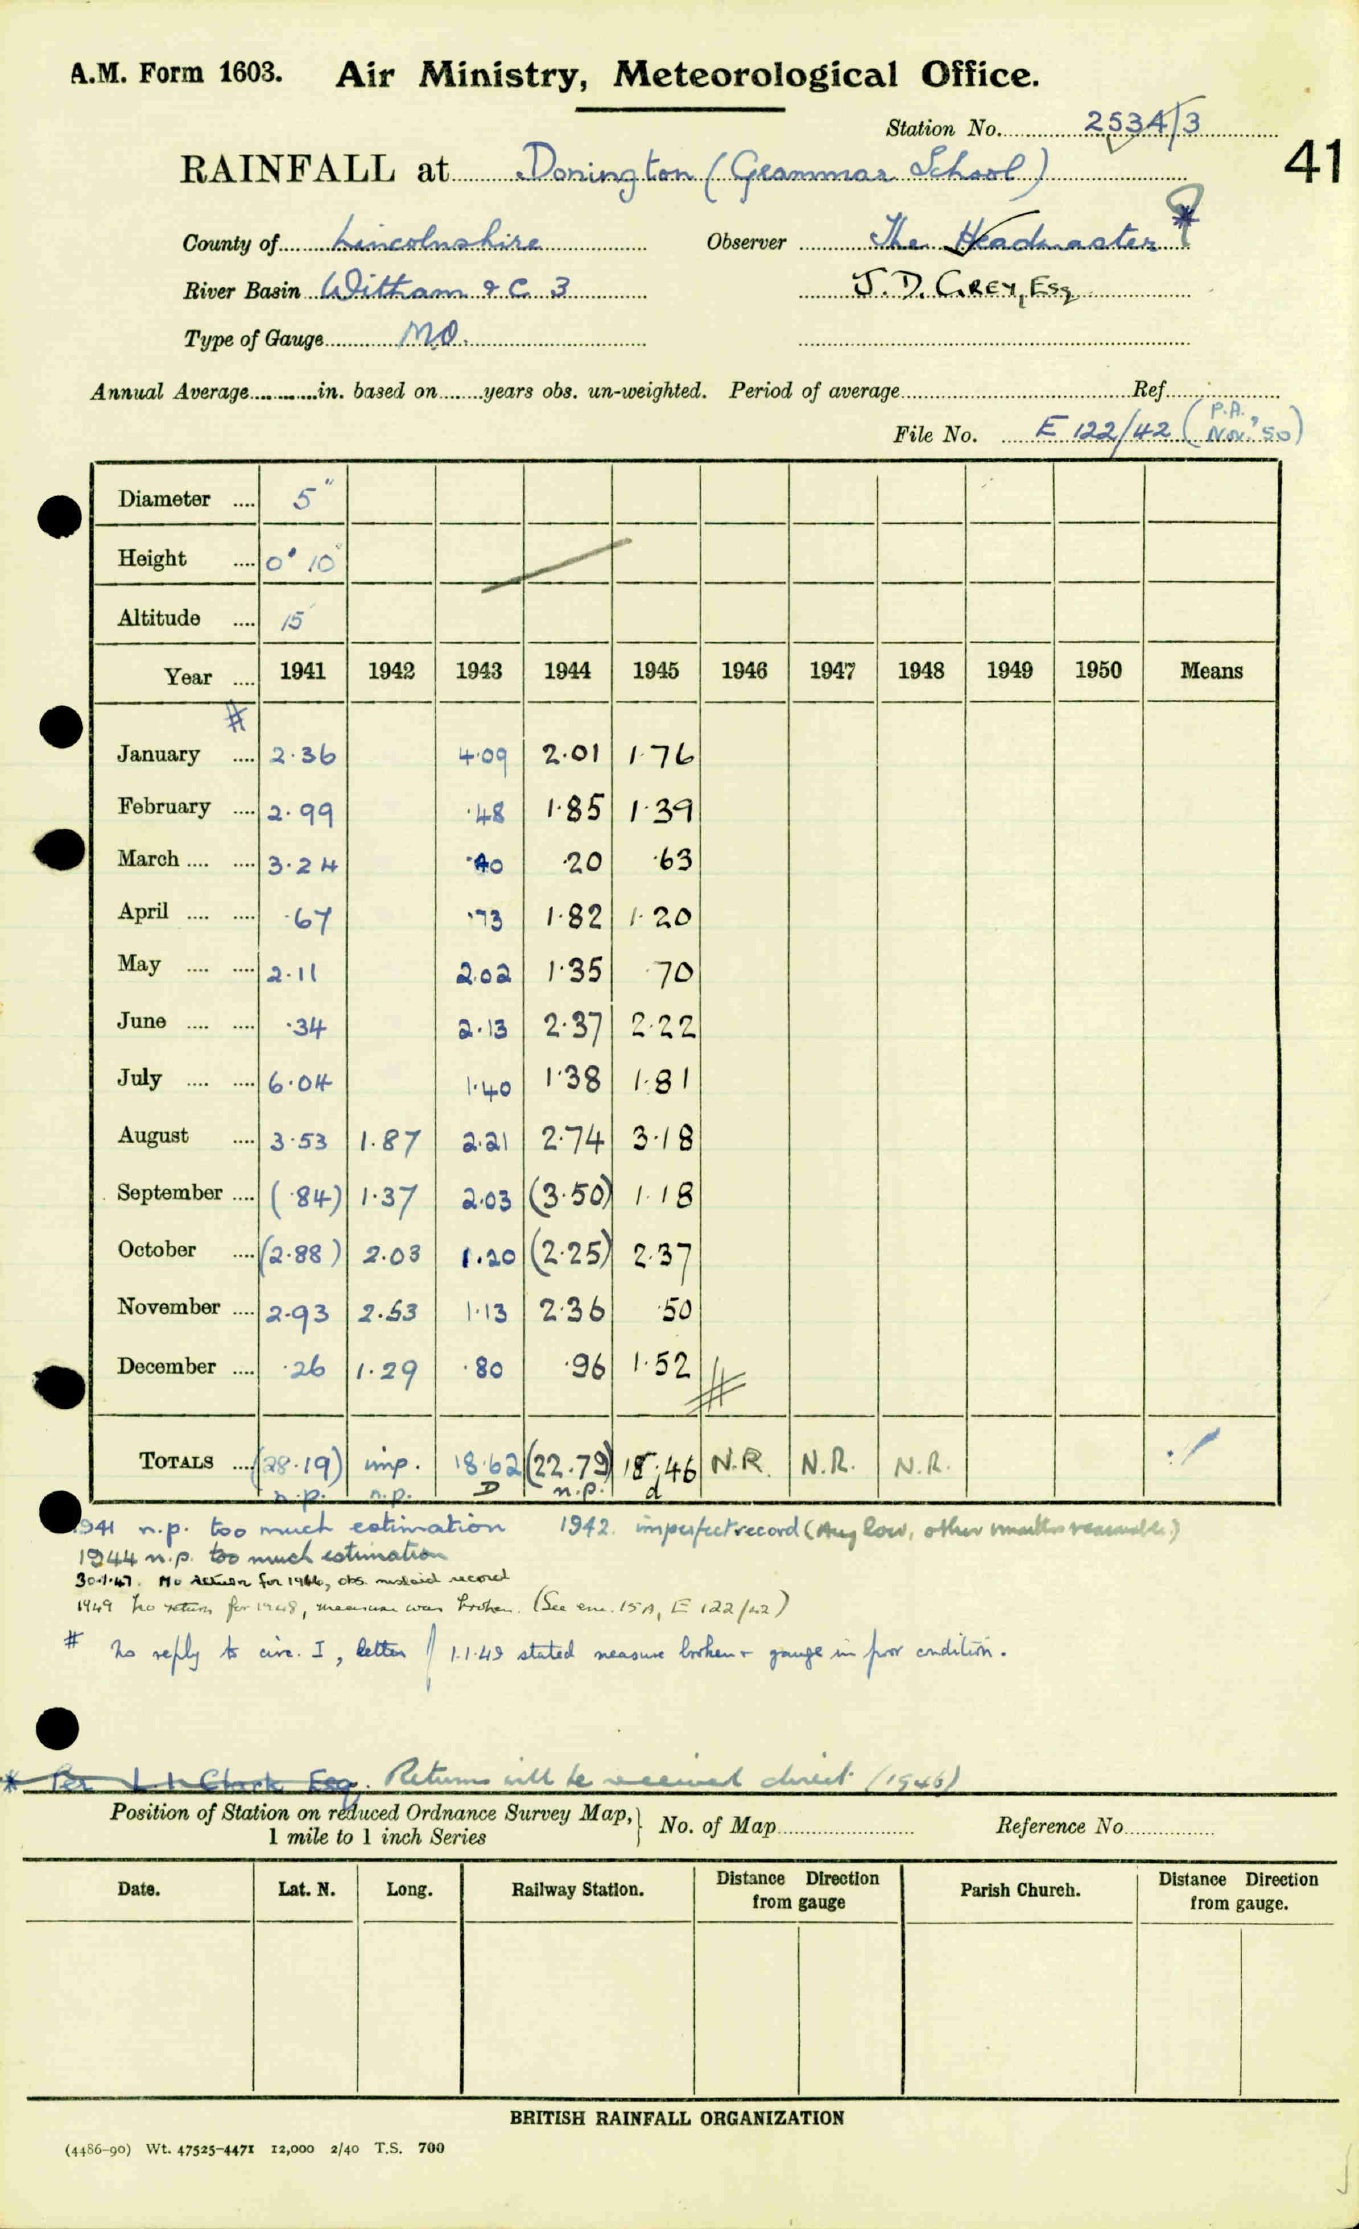 A.M. Form 1603. Air Ministry, Meteorological Office.
Station No. 2534/3
41
RAINFALL at Donington (Grammar School)
County of Lincolnshire Observer The Headmaster *
River Basin Witham & C. 3 J. D. GREY, Esq
Type of Gauge M.O.
Annual Average............in. based on........years obs. un-weighted. Period of average........Ref........
File No. E 122/42 (P.A. Nov. '50)
Diameter .... 5"
Height .... 0' 10"
Altitude .... 15
Year .... 1941 1942 1943 1944 1945 1946 1947 1948 1949 1950 Means
#
January .... 2.36 4.09 2.01 1.76
February .... 2.99 .48 1.85 1.39
March .... .... 3.24 .40 .20 .63
April .... .... .67 .73 1.82 1.20
May .... .... 2.11 2.02 1.35 .70
June .... .... .34 2.13 2.37 2.22
July .... .... 6.04 1.40 1.38 1.81
August .... 3.53 1.87 2.21 2.74 3.18
September .... (.84) 1.37 2.03 (3.50) 1.18
October .... (2.88) 2.03 1.20 (2.25) 2.37
November .... 2.93 2.53 1.13 2.36 .50
December .... .26 1.29 .80 .96 1.52
#
TOTALS .... (28.19) imp. 18.62 (22.79) 18.46 N.R. N.R. N.R.
n.p. n.p. D n.p. d
1941 n.p. too much estimation 1942. imperfect record (Aug low, other months reasonable)
1944 n.p. too much estimation
30.1.47. No return for 1946, obs. mislaid record
1949 No return for 1948, measure was broken. (See enc. 15A, E 122/42)
# No reply to circ. I, letter of 1.1.49 stated measure broken & gauge in poor condition.
* Per L. Clark Esq. Returns will be received direct (1946)
Position of Station on reduced Ordnance Survey Map, } No. of Map Reference No.
1 mile to 1 inch Series
Date. Lat. N. Long. Railway Station. Distance Direction from gauge Parish Church. Distance Direction from gauge.
BRITISH RAINFALL ORGANIZATION
(4486-90) Wt. 47525-4471 12,000 2/40 T.S. 700